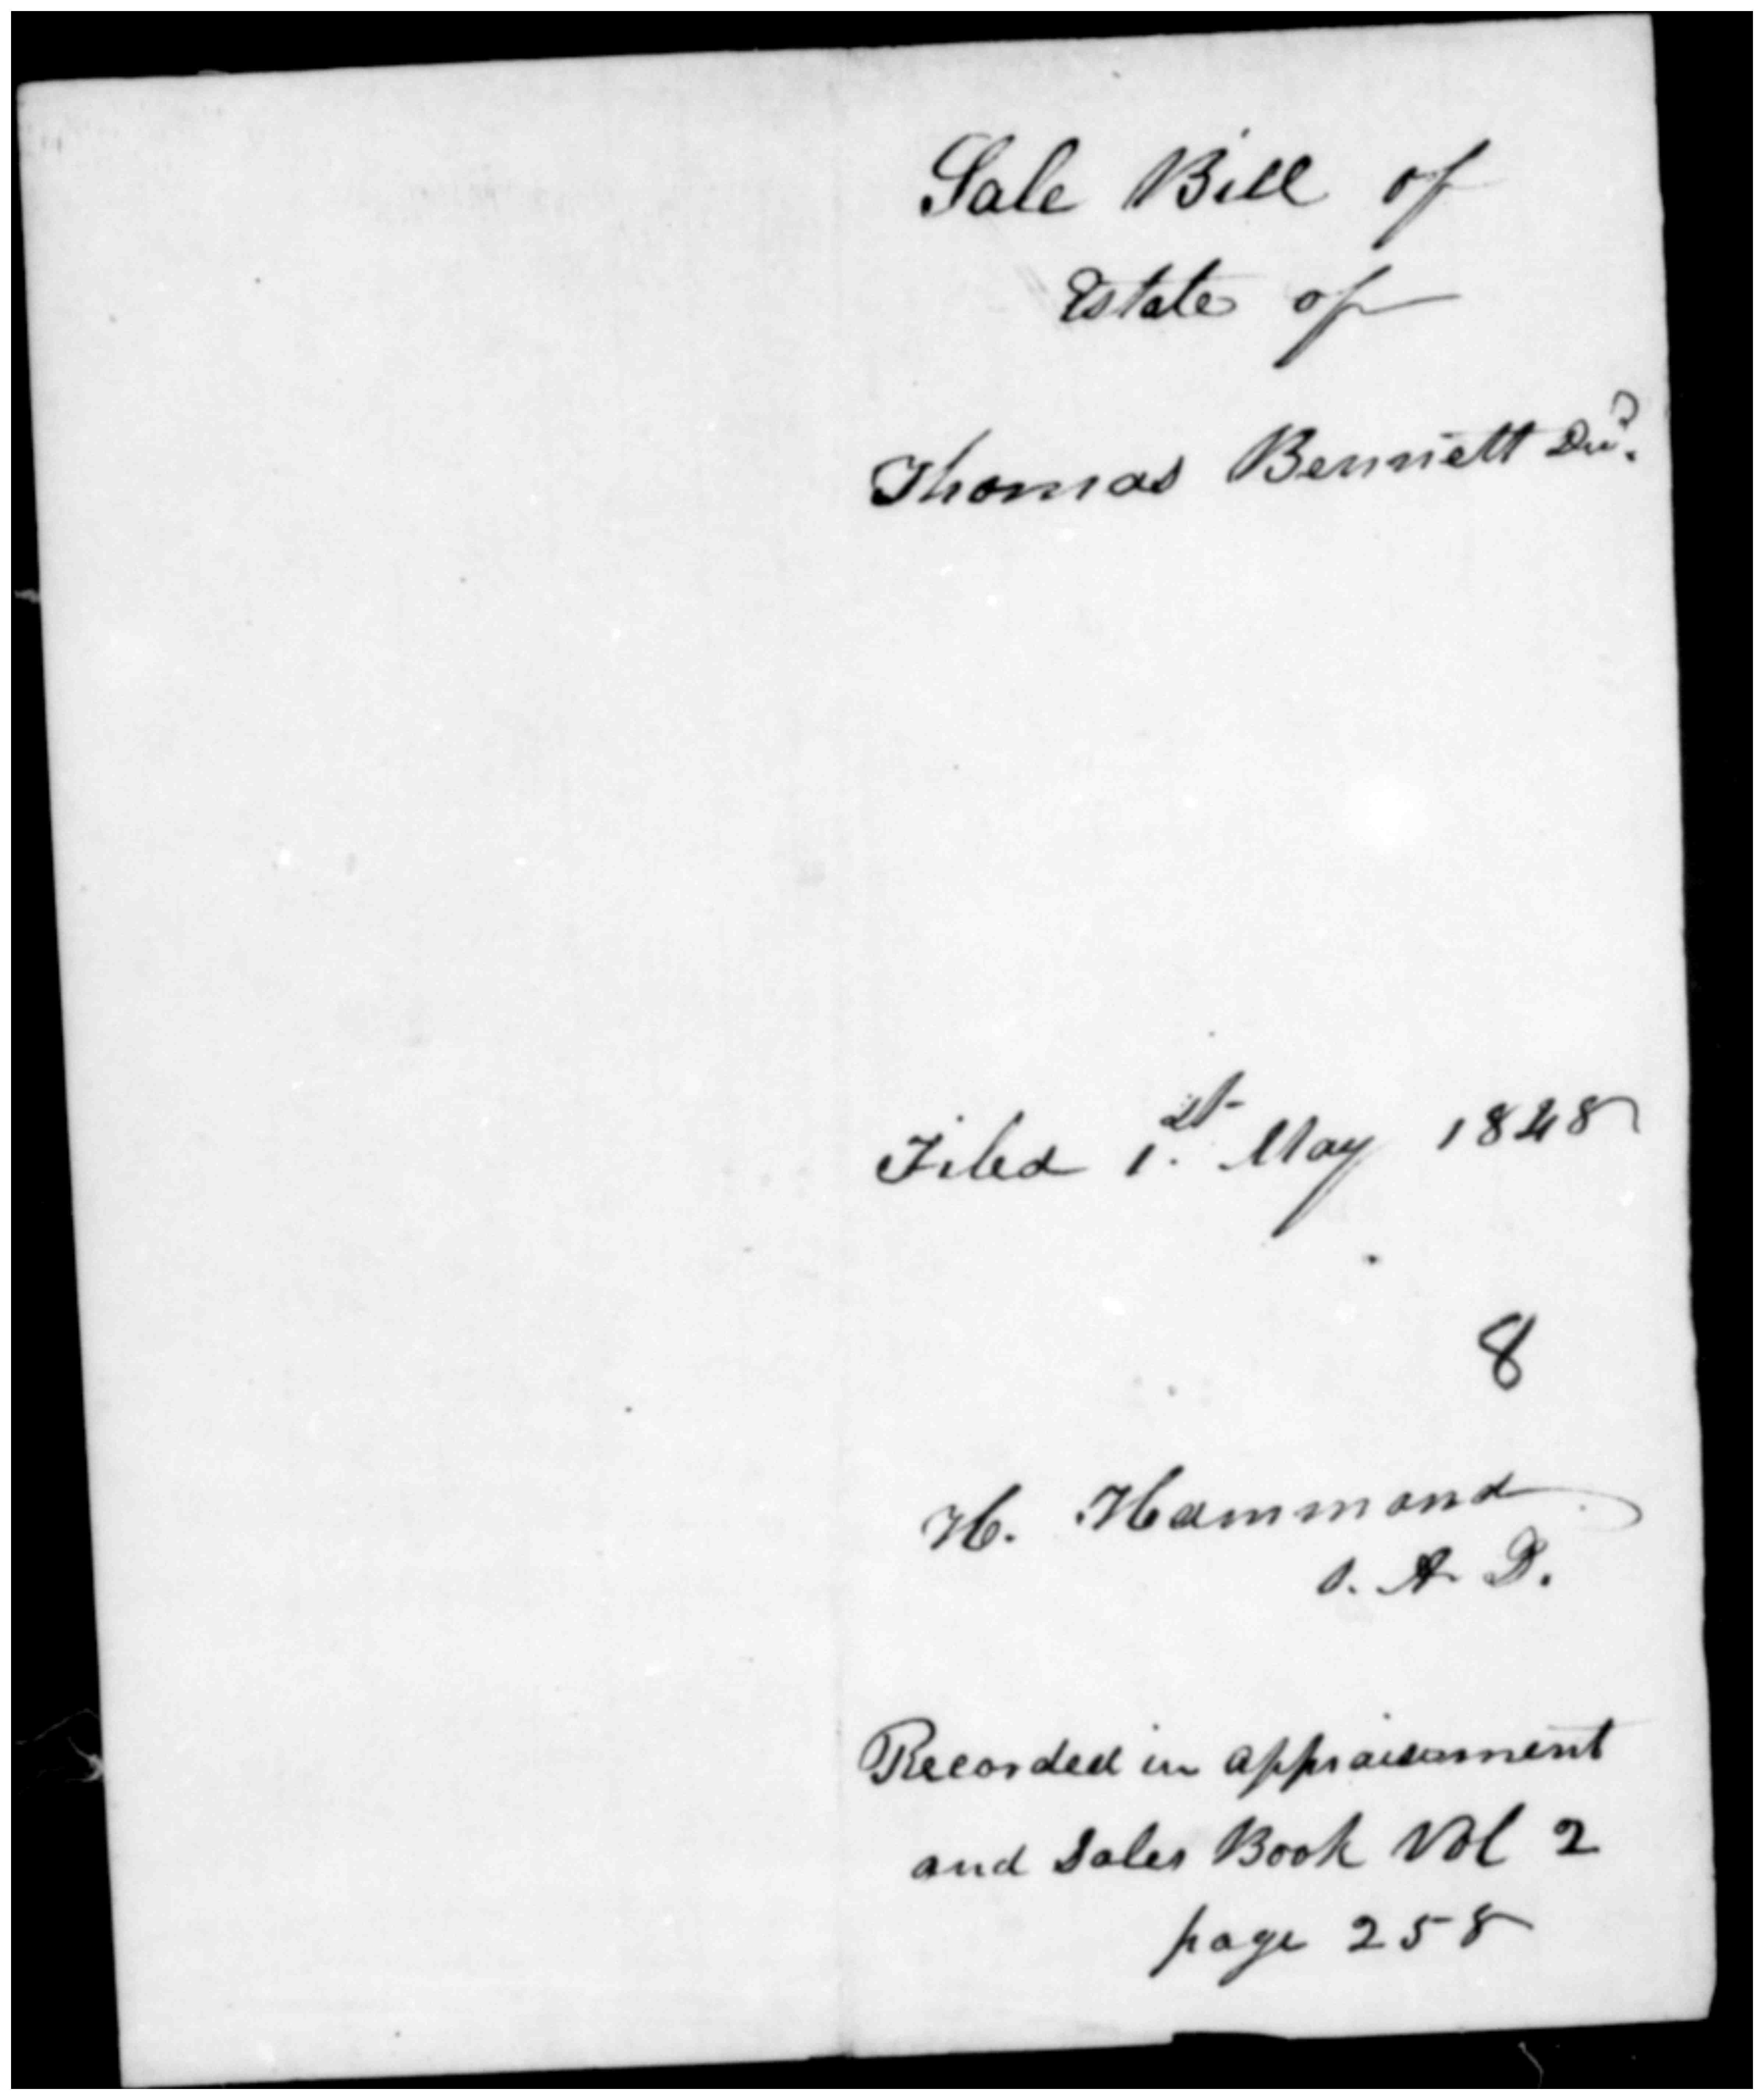 Sale Bill of
Estate of
Thomas Bennett Decd.
Filed 1st. May 1848
8
H. Hammond
O. A. D.
Recorded in appraisement
and Sales Book Vol 2
page 258